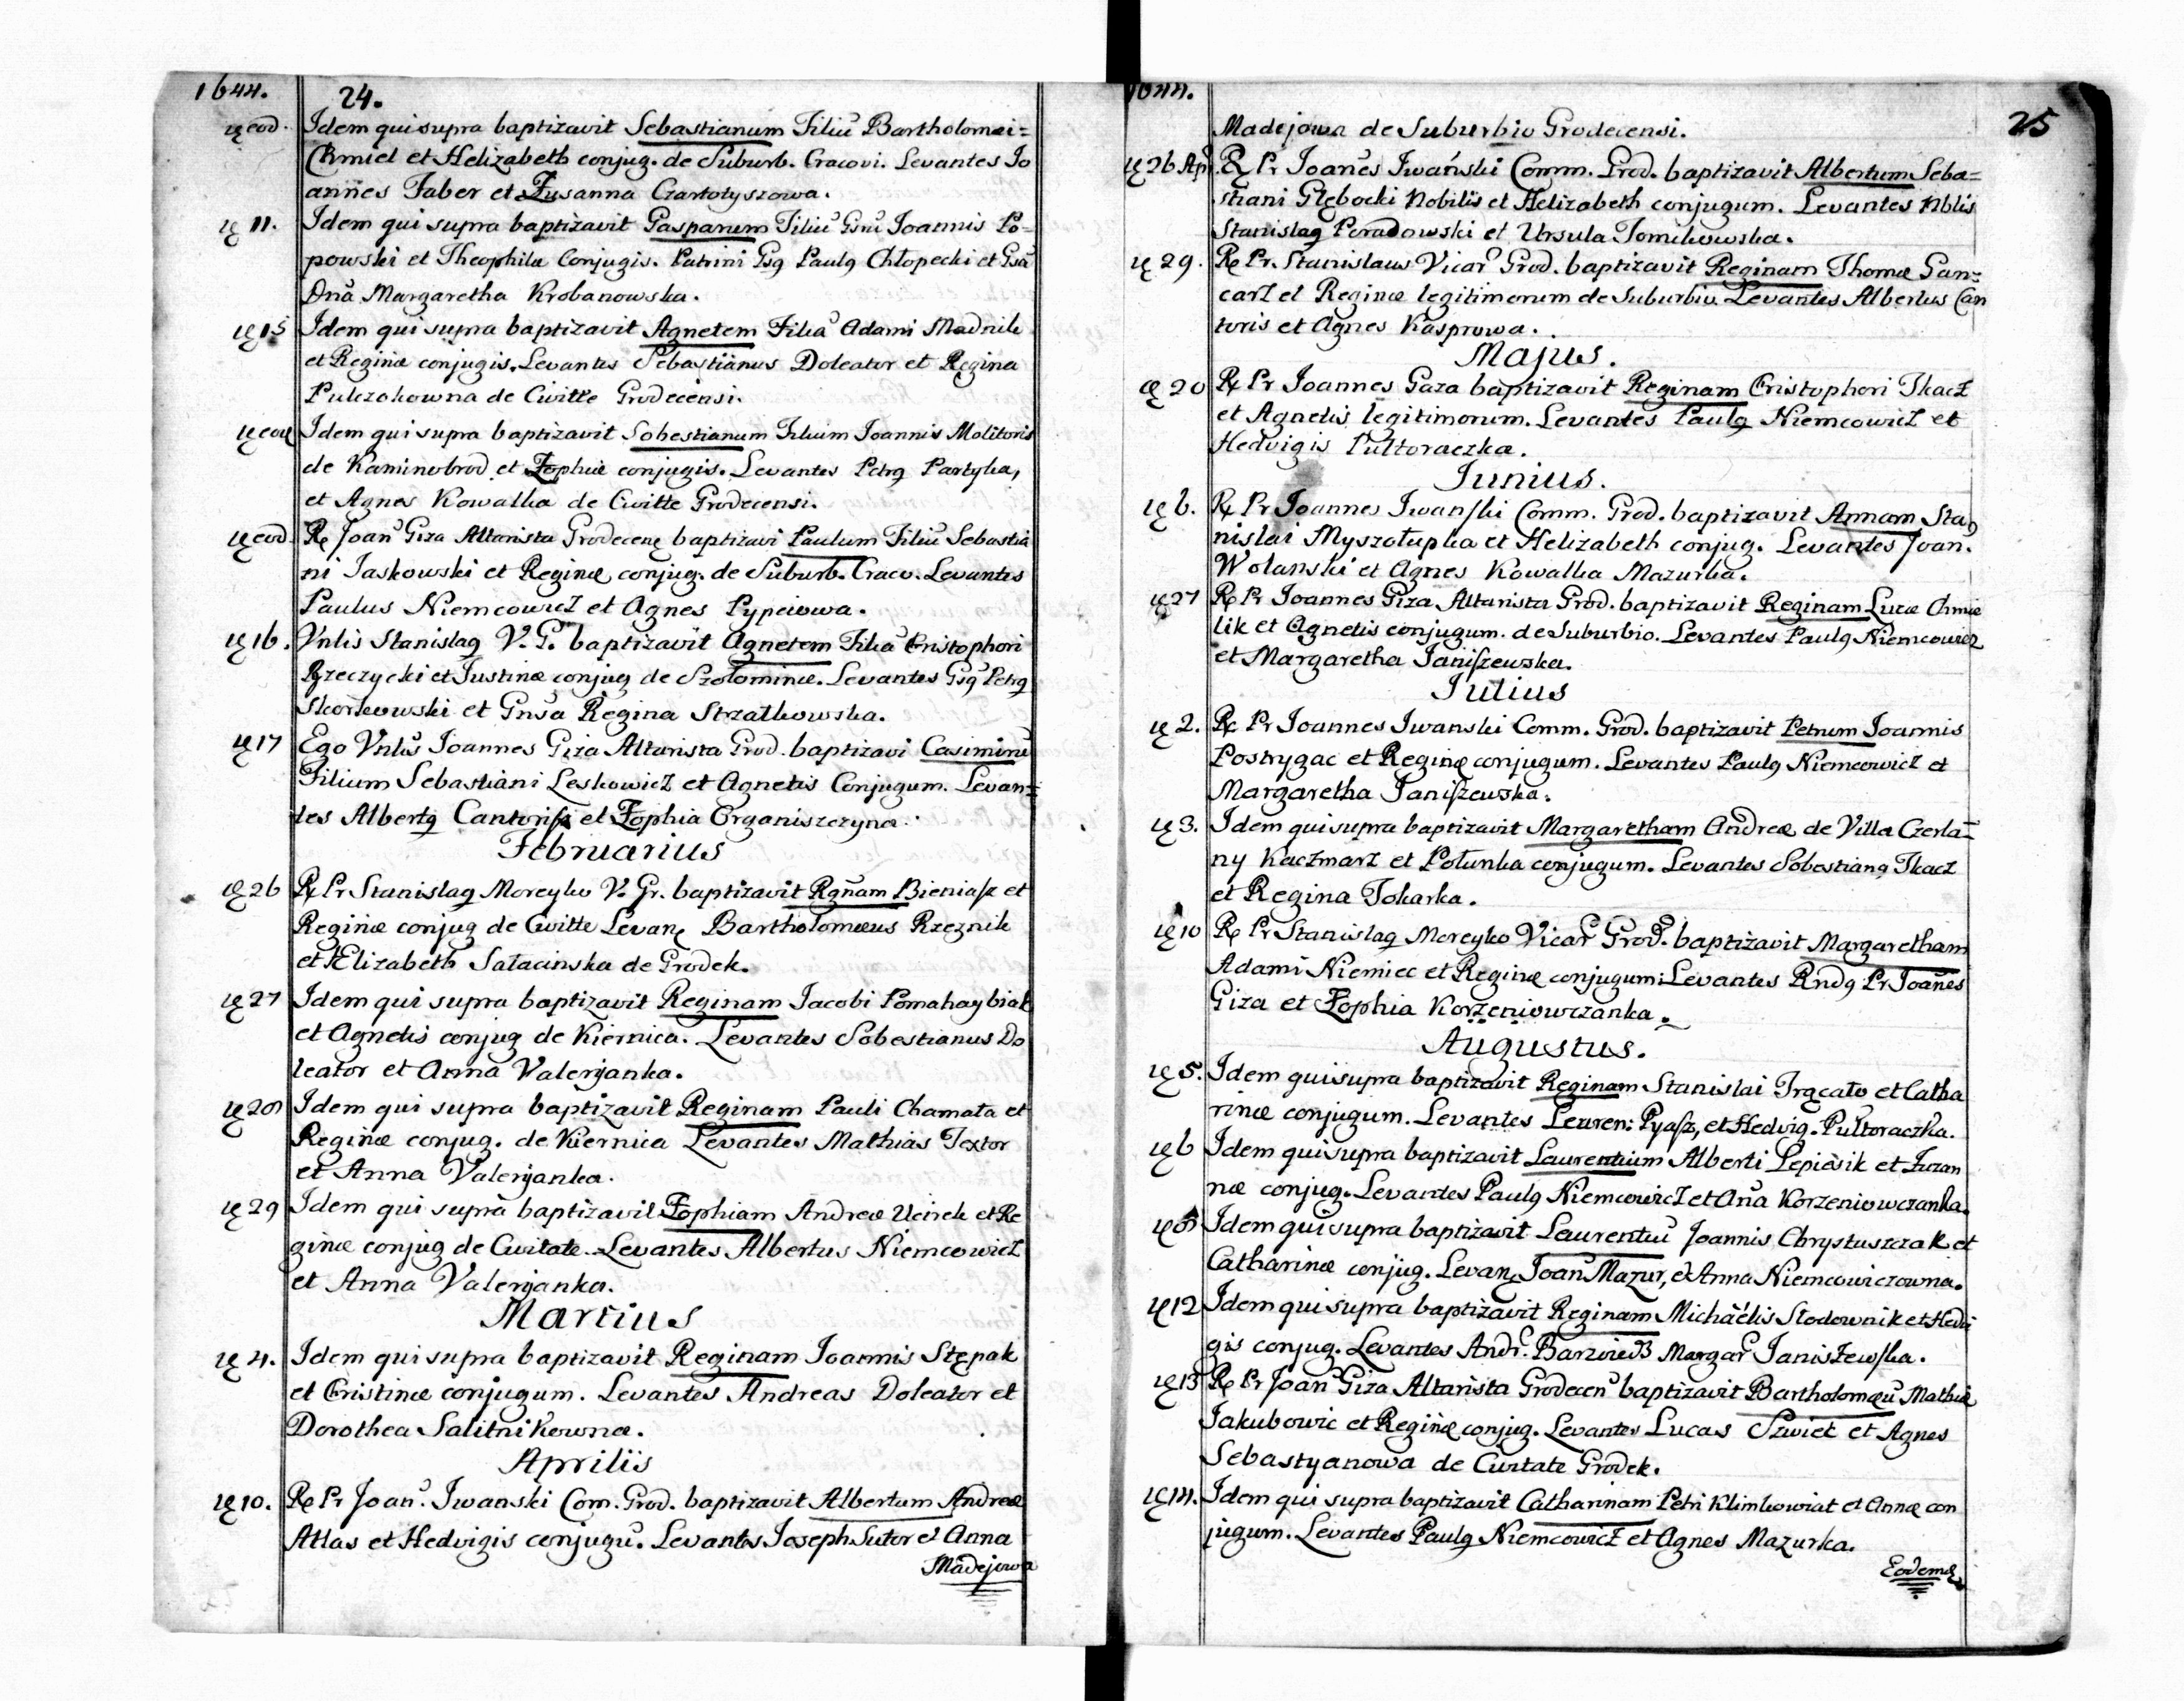 1644. 24.
eod. Idem qui supra baptizavit Sebastianum Filiū Bartholomei=
Chmiel et Helizabeth conjug. de Suburb. Cracovi. Levantes Jo
annes Faber et Zusanna Czartoryszowa.
11. Idem qui supra baptizavit Gasparum Filiū Gsnī Joannis Po-
powski et Theophilæ Conjugis. Patrini Gsg Paulg Chłopecki et Gsā
Dnā Margaretha Krobanowska.
15 Idem qui supra baptizavit Agnetem Filiā Adami Madnik
et Reginæ conjugis. Levantes Sebastianus Doleator et Regina
Pulczokowna de Civitte Grodecensi.
eod Idem qui supra baptizavit Sobestianum Filium Joannis Molitoris
de Kaminobrod et Zophiæ conjugis. Levantes Petrg Partyka,
et Agnes Kowalka de Civitte Grodecensi.
eod. R Joan Giza Altarista Grodecens baptizavi Paulum Filiū Sebastia
ni Jaskowski et Reginæ conjug. de Suburb. Cracv. Levantes
Paulus Niemcowicz et Agnes Pypciowa.
16. Vnlis Stanislag V. G. baptizavit Agnetem Filiā Cristophori
Rzeczycki et Justinæ conjug de Szołominæ. Levantes Gsg Petrg
Skorkowski et Gnsa Regina Strzałkowska.
17 Ego Vnlis Joannes Giza Altarista Grod. baptizavi Casimirū
Filium Sebastiani Leskowicz et Agnetis Conjugum. Levan=
tes Albertg Cantoris et Zophia Organiszczyna.
Februarius
26 R Pr Stanislag Moreyko V. Gr. baptizavit Rgnam Bieniasz et
Reginæ conjug de Civitte Levan Bartholomæus Rzeznik
et Elizabeth Sałacinska de Grodek.
27 Idem qui supra baptizavit Reginam Jacobi Pomahaybiał
et Agnetis conjug de Kiernica. Levantes Sobestianus Do
leator et Anna Valenjanka.
28 Idem qui supra baptizavit Reginam Pauli Chamata et
Reginæ conjug. de Kiernica Levantes Mathias Textor
et Anna Valenjanka.
29 Idem qui supra baptizavit Zophiam Andreæ Ucirek et Re
ginæ conjug de Civitate. Levantes Albertus Niemcowicz
et Anna Valenjanka.
Martius
4. Idem qui supra baptizavit Reginam Joannis Stępak
et Cristinæ conjugum. Levantes Andreas Doleator et
Dorothea Salitnikowna.
Aprilis
10. R Pr Joan. Iwanski Com. Grod. baptizavit Albertum Andreæ
Atlas et Hedvigis conjugū. Levantes Joseph Sutor et Anna
Madejowa
1644. 25
Madejowa de Suburbio Grodecensi.
26 Apr. R Pr Joanēs Iwański Comm. Grod. baptizavit Albertum Seba=
stiani Głębocki Nobilis et Helizabeth conjugum. Levantes Nblis
Stanislag Poradowski et Ursula Tomikowska.
29. R Pr. Stanislaus Vicar Grod. baptizavit Reginam Thomæ Gan=
carz et Reginæ legitimorum de Suburbio. Levantes Albertus Can
toris et Agnes Kasprowa.
Majus.
20 R Pr Joannes Gaza baptizavit Reginam Cristophori Tkacz
et Agnetis legitimorum. Levantes Paulg Niemcowicz et
Hedvigis Pułtoraczka.
Junius.
6. R Pr Joannes Iwanski Comm. Grod. baptizavit Annam Sta
nislai Myszołupka et Helizabeth conjug. Levantes Joan.
Wolanski et Agnes Kowalka Mazurka.
27 R Pr Joannes Giza Altarista Grod. baptizavit Reginam Lucæ Chmie
lik et Agnetis conjugum. de Suburbio. Levantes Paulg Niemcowicz
et Margaretha Janiszewska.
Julius
2. R Pr Joannes Iwanski Comm. Grod. baptizavit Petrum Joannis
Postrygac et Reginæ conjugum. Levantes Paulg Niemcowicz et
Margaretha Janiszewska.
3. Idem qui supra baptizavit Margaretham Andreæ de Villa Czerla=
ny Kaczmarz et Połunka conjugum. Levantes Sobestiang Tkacz
et Regina Tokarka.
10 R Pr Stanislag Moreyko Vicar Grod. baptizavit Margaretham
Adami Niemiec et Reginæ conjugum. Levantes Rndg Pr Joañes
Giza et Zophia Korzeniowczanka.
Augustus.
5. Idem qui supra baptizavit Reginam Stanislai Trącało et Catha
rinæ conjugum. Levantes Lauren: Pyasz, et Hedvig. Pułtoraczka.
6 Idem qui supra baptizavit Laurentium Alberti Lepiasik et Zuzan
næ conjug. Levantes Paulg Niemcowicz et Aña Korzeniowczanka.
8 Idem qui supra baptizavit Laurentiū Joannis Chrystuszczak et
Catharinæ conjug. Levan Joan Mazur, et Anna Niemcowiczowna.
12 Idem qui supra baptizavit Reginam Michaëlis Stodownik et Hedvi
gis conjug. Levantes Andr. Barwicz Margar Janiszewska.
13 R Pr Joan Giza Altarista Grodecen baptizavit Bartholomæū Mathiæ
Jakubowic et Reginæ conjug. Levantes Lucas Szwiec et Agnes
Sebastyanowa de Civitate Grodek.
14. Idem qui supra baptizavit Catharinam Petri Klimkowiat et Annæ con
jugum. Levantes Paulg Niemcowicz et Agnes Mazurka.
Eodem